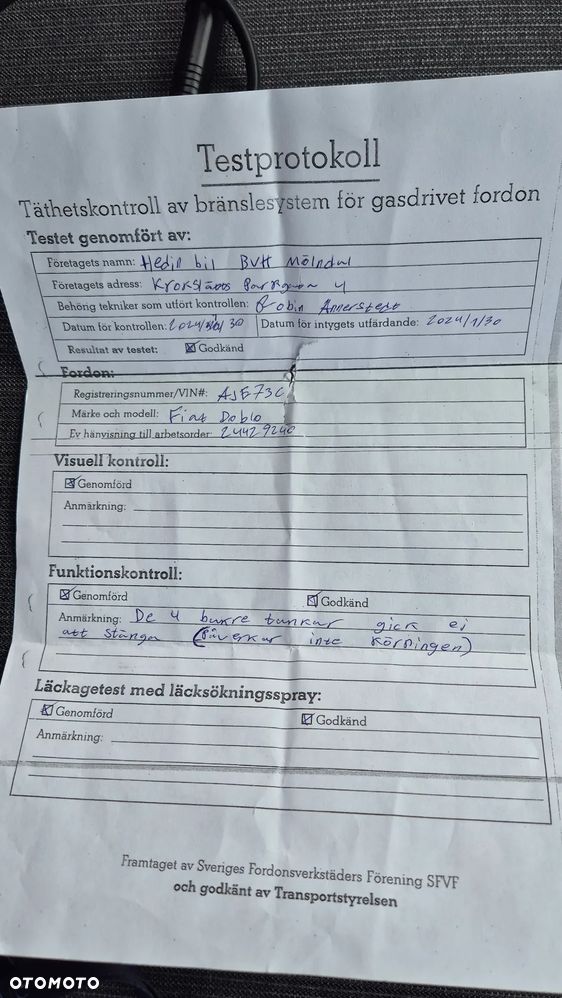 Testprotokoll
Täthetskontroll av bränslesystem för gasdrivet fordon
Testet genomfört av:
Företagets namn: Hedin bil BVH Mölndal
Företagets adress: 4
Behörig tekniker som utfört kontrollen: Robin Annerstedt
Datum för kontrollen: 2024 30 Datum för intygets utfärdande: 2024/1/30
Resultat av testet: Godkänd
Fordon:
Registreringsnummer/VIN#:
Märke och modell: Fiat Doblo
Ev hänvisning till arbetsorder: 24429240
Visuell kontroll:
Genomförd
Anmärkning:
Funktionskontroll:
Genomförd Godkänd
Anmärkning: De 4 bakre tankar gick ej
att stänga (Påverkar inte körningen)
Läckagetest med läcksökningsspray:
Genomförd Godkänd
Anmärkning:
Framtaget av Sveriges Fordonsverkstäders Förening SFVF
och godkänt av Transportstyrelsen
OTOMOTO